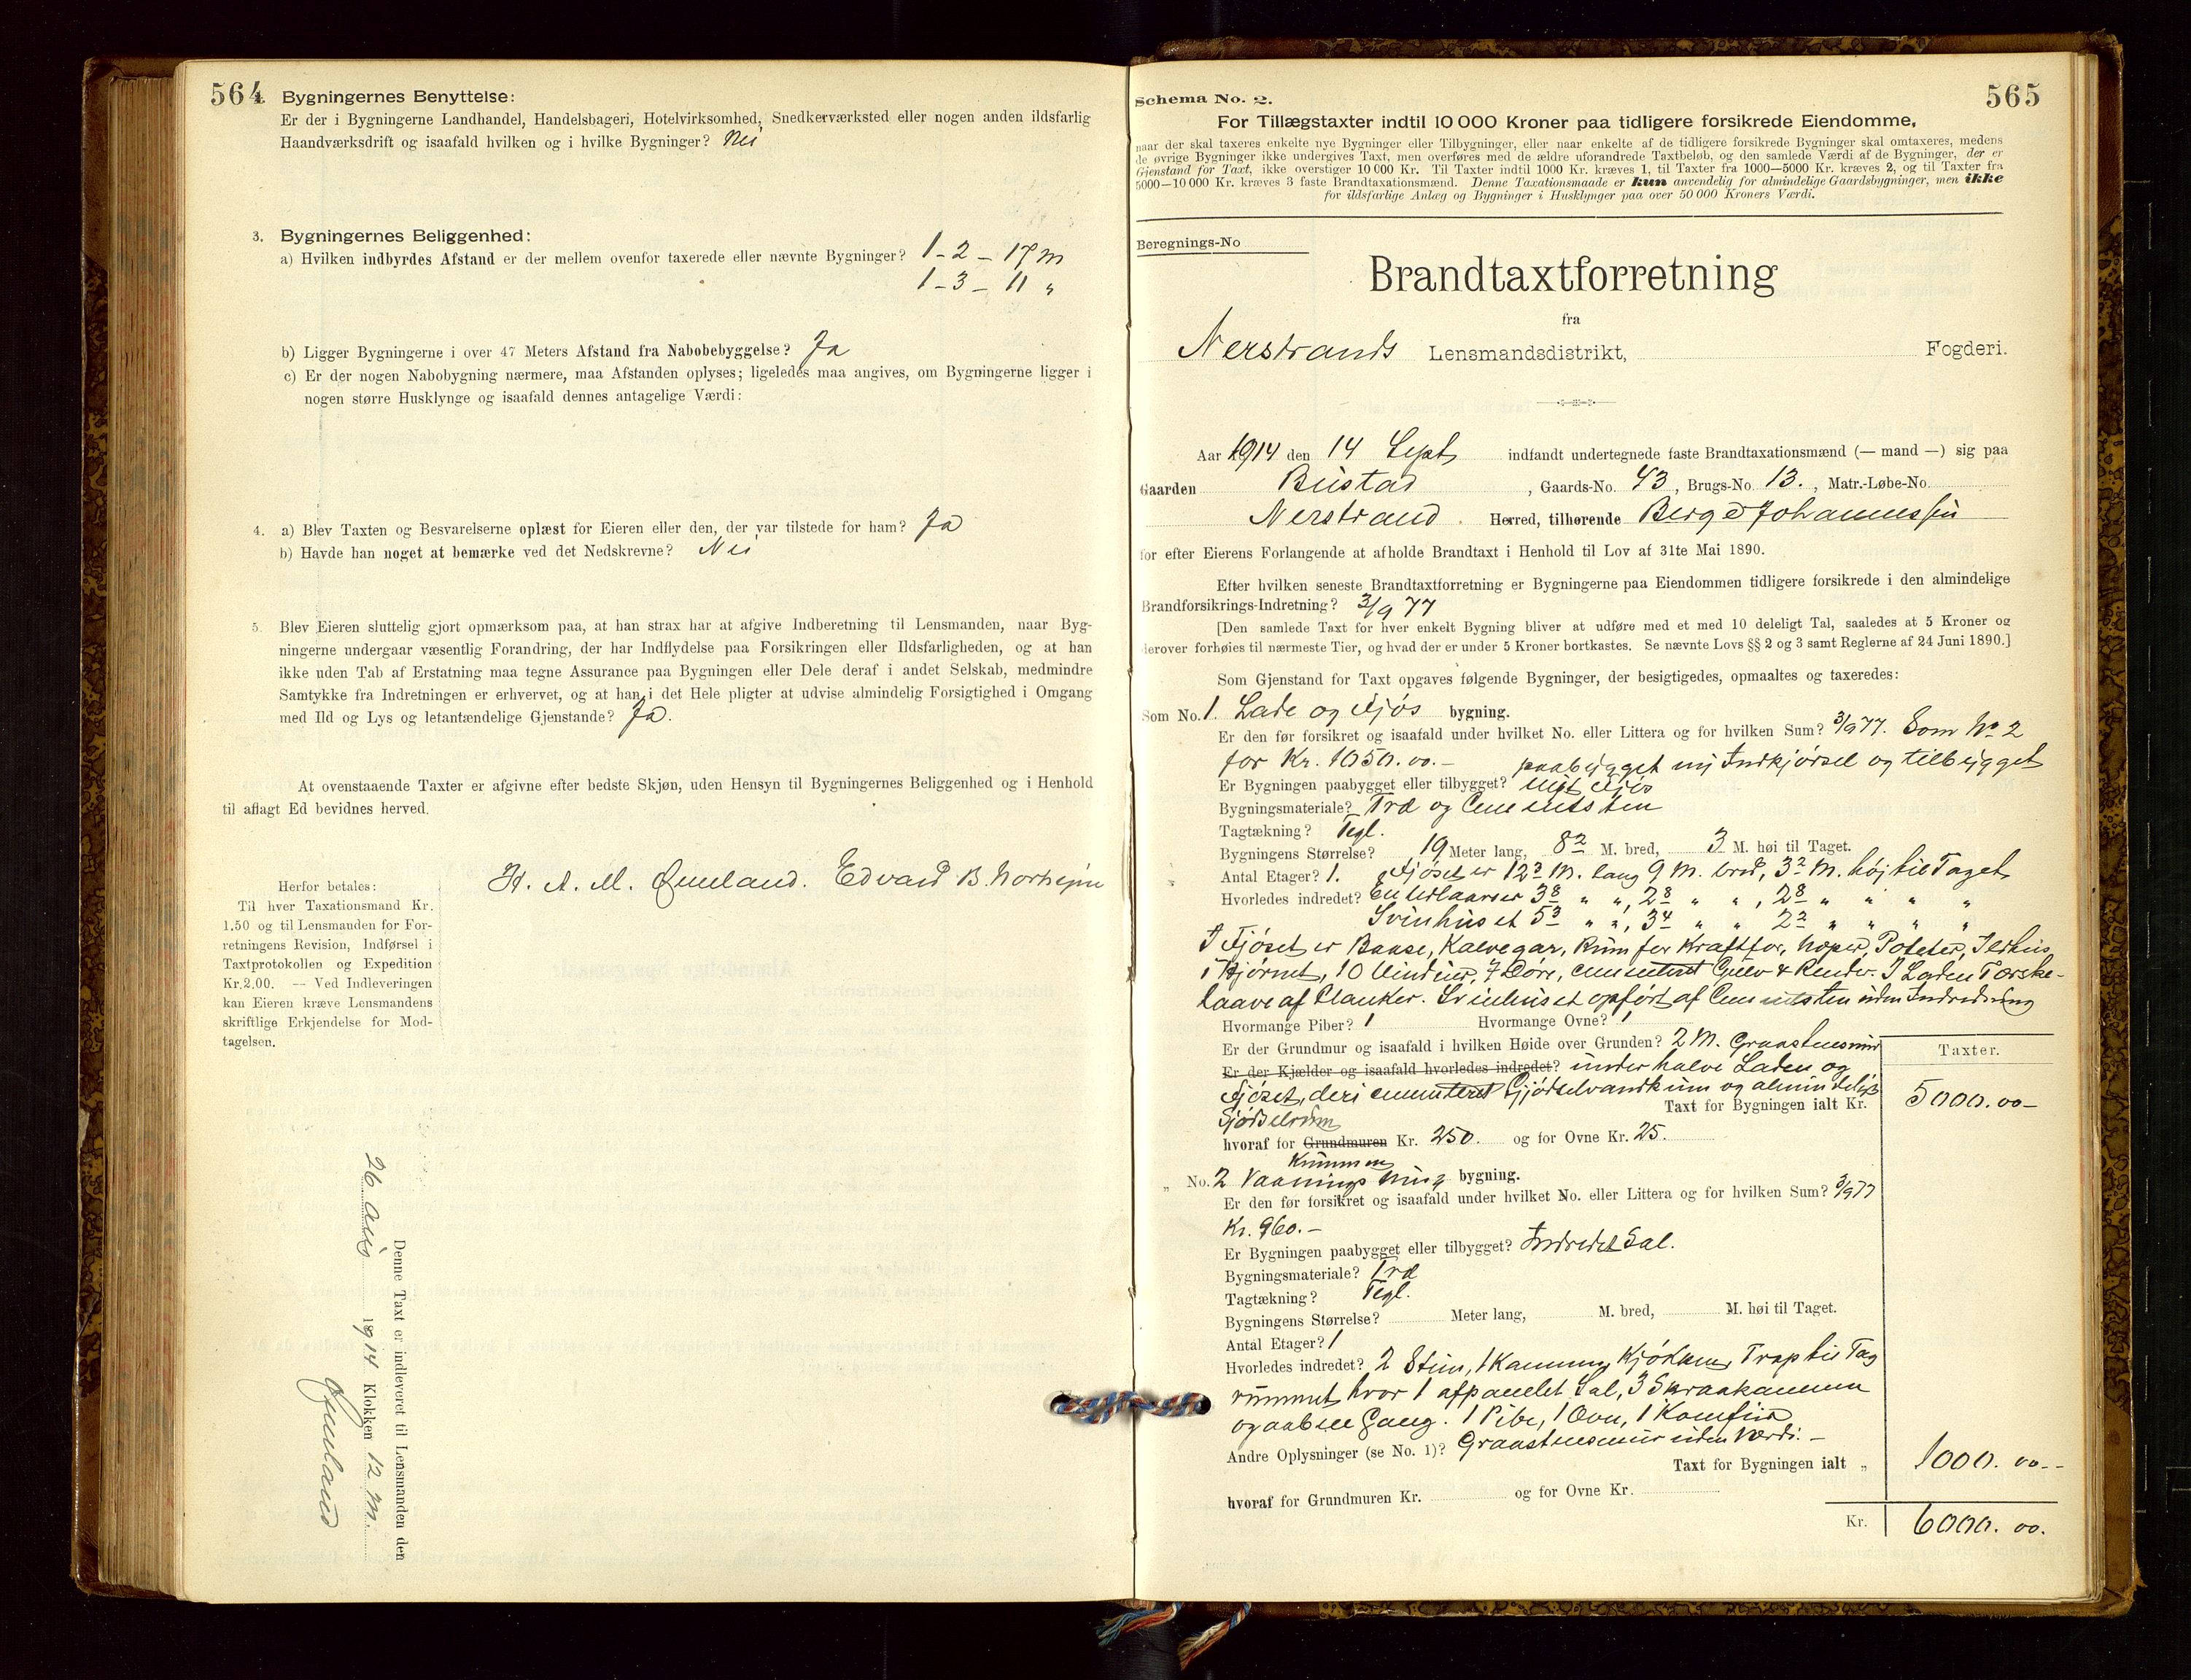 564
Bygningernes Benyttelse:
Er der i Bygningerne Landhandel, Handelsbageri, Hotelvirksomhed, Snedkerværksted eller nogen anden ildsfarlig
Haandværksdrift og isaafald hvilken og i hvilke Bygninger? Nei
3. Bygningernes Beliggenhed:
a) Hvilken indbyrdes Afstand er der mellem ovenfor taxerede eller nævnte Bygninger? 1-2 - 17 m
1-3 - 11 "
b) Ligger Bygningerne i over 47 Meters Afstand fra Nabobebyggelse? Ja
c) Er der nogen Nabobygning nærmere, maa Afstanden oplyses; ligeledes maa angives, om Bygningerne ligger i
nogen større Husklynge og isaafald dennes antagelige Værdi:
4. a) Blev Taxten og Besvarelserne oplæst for Eieren eller den, der var tilstede for ham? Ja
b) Havde han noget at bemærke ved det Nedskrevne? Nei
5. Blev Eieren sluttelig gjort opmærksom paa, at han strax har at afgive Indberetning til Lensmanden, naar Byg-
ningerne undergaar væsentlig Forandring, der har Indflydelse paa Forsikringen eller Ildsfarligheden, og at han
ikke uden Tab af Erstatning maa tegne Assurance paa Bygningen eller Dele deraf i andet Selskab, medmindre
Samtykke fra Indretningen er erhvervet, og at han i det Hele pligter at udvise almindelig Forsigtighed i Omgang
med Ild og Lys og letantændelige Gjenstande? Ja.
At ovenstaaende Taxter er afgivne efter bedste Skjøn, uden Hensyn til Bygningernes Beliggenhed og i Henhold
til aflagt Ed bevidnes herved.
H. A. M. Edvard B.
Herfor betales:
Til hver Taxationsmand Kr.
1.50 og til Lensmanden for For-
retningens Revision, Indførsel i
Taxtprotokollen og Expedition
Kr. 2.00. — Ved Indleveringen
kan Eieren kræve Lensmandens
skriftlige Erkjendelse for Mod-
tagelsen.
Denne Taxt er indleveret til Lensmanden den
26 1914 Klokken 12 M.
565
Schema No. 2.
For Tillægstaxter indtil 10 000 Kroner paa tidligere forsikrede Eiendomme,
naar der skal taxeres enkelte nye Bygninger eller Tilbygninger, eller naar enkelte af de tidligere forsikrede Bygninger skal omtaxeres, medens
de øvrige Bygninger ikke undergives Taxt, men overføres med de ældre uforandrede Taxtbeløb, og den samlede Værdi af de Bygninger, der er
Gjenstand for Taxt, ikke overstiger 10 000 Kr. Til Taxter indtil 1000 Kr. kræves 1, til Taxter fra 1000—5000 Kr. kræves 2, og til Taxter fra
5000—10 000 Kr. kræves 3 faste Brandtaxationsmænd. Denne Taxationsmaade er kun anvendelig for almindelige Gaardsbygninger, men ikke
for ildsfarlige Anlæg og Bygninger i Husklynger paa over 50 000 Kroners Værdi.
Beregnings-No
Brandtaxtforretning
fra
Nerstrands Lensmandsdistrikt, Fogderi.
Aar 1914 den 14 Sept indfandt undertegnede faste Brandtaxationsmænd (— mand —) sig paa
Gaarden Bustad, Gaards-No. 43, Brugs-No. 13., Matr.-Løbe-No.
Nerstrand. Herred, tilhørende Johannessen
for efter Eierens Forlangende at afholde Brandtaxt i Henhold til Lov af 31te Mai 1890.
Efter hvilken seneste Brandtaxtforretning er Bygningerne paa Eiendommen tidligere forsikrede i den almindelige
Brandforsikrings-Indretning? 3/9 77
[Den samlede Taxt for hver enkelt Bygning bliver at udføre med et med 10 deleligt Tal, saaledes at 5 Kroner og
derover forhøies til nærmeste Tier, og hvad der er under 5 Kroner bortkastes. Se nævnte Lovs §§ 2 og 3 samt Reglerne af 24 Juni 1890.]
Som Gjenstand for Taxt opgaves følgende Bygninger, der besigtigedes, opmaaltes og taxeredes:
Som No. 1. Lade og Fjøs bygning.
Er den før forsikret og isaafald under hvilket No. eller Littera og for hvilken Sum? 3/9 77. Som No 2
for Kr. 1050.00.-
Er Bygningen paabygget eller tilbygget? paabygget ny Indkjørsel og tilbygget
nyt Fjøs
Bygningsmateriale? Træ og Cementsten
Tagtækning? Tegl.
Bygningens Størrelse? 19 Meter lang, 8² M. bred, 3 M. høi til Taget.
Antal Etager? 1. Fjøset er 12³ M. lang 9 M. bred, 3² M. høj til Taget
Hvorledes indredet? En 3⁸ " ", 2⁸ " ", 2⁸ " " " "
Svinhuset 5³ " ", 3⁴ " " 2² " " " "
I Fjøset er Baase, Kalvegar, Rum for Kraftfor, Poteter, Ildhus
i Hjørnet, 10 Vinduer, 7 Døre, cementeret Gulv & Render. I Laden Tærske-
laave af Planker. Svinhuset opført af Cementsten uden Indredning
Hvormange Piber? 1 Hvormange Ovne? 1
Er der Grundmur og isaafald i hvilken Høide over Grunden? 2 M. Graastensmur
Er der Kjælder og isaafald hvorledes indredet? under halve Laden og
Fjøset, deri cementeret Gjødselvandkum og almindeligt
Gjødselrum
Taxt for Bygningen ialt Kr.
Taxter.
5000.00—
hvoraf for Grundmuren Kr. 250. og for Ovne Kr. 25.
Kummen
" No. 2 Vaanings hus bygning.
Er den før forsikret og isaafald under hvilket No. eller Littera og for hvilken Sum? 3/9 77
Kr. 960.-
Er Bygningen paabygget eller tilbygget? Indredet Sal.
Bygningsmateriale? Træ
Tagtækning? Tegl.
Bygningens Størrelse? Meter lang, M. bred, M. høi til Taget.
Antal Etager? 1
Hvorledes indredet? 2 Stuer, 1 Kammer, Kjøkken, Trap til Tag
rummet hvor 1 afpanelet Sal, 3 Skraakammere
og aaben Gang. 1 Pibe, 1 Ovn, 1 Komfur
Andre Oplysninger (se No. 1)? Graastensmur uden Værdi.-
Taxt for Bygningen ialt " 1000.00--
hvoraf for Grundmuren Kr. og for Ovne Kr.
Kr. 6000.00.